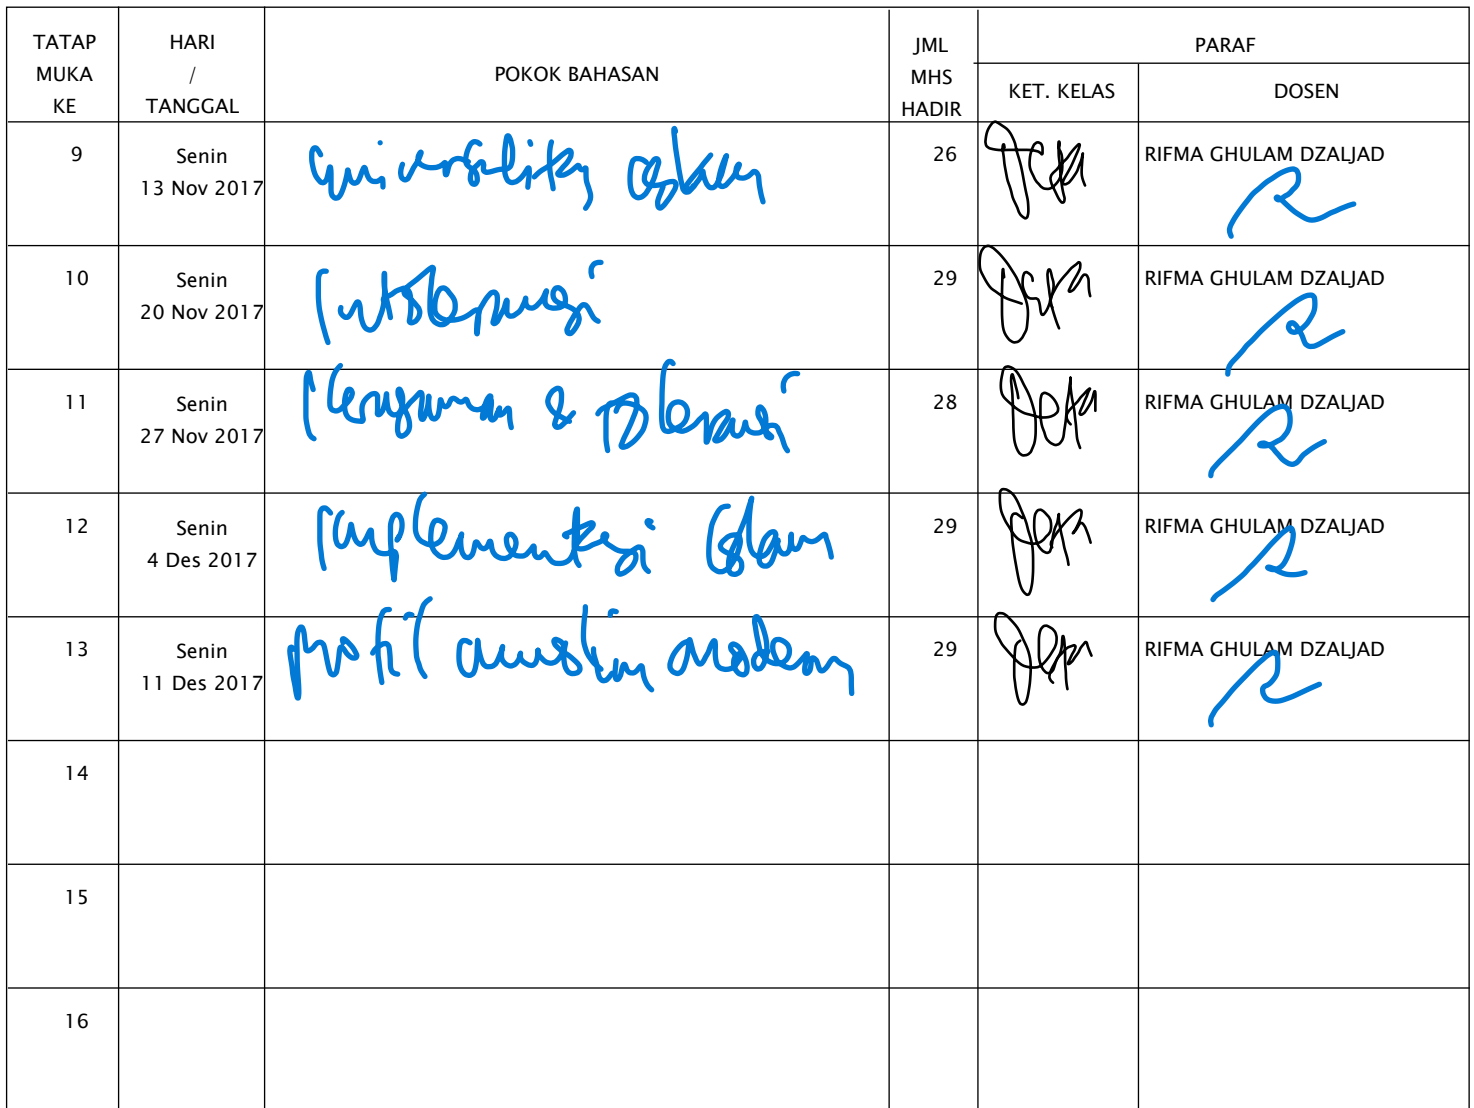 TATAP MUKA KE HARI / TANGGAL POKOK BAHASAN JML MHS HADIR PARAF
KET. KELAS DOSEN
9 Senin 13 Nov 2017 universalitas islam 26 RIFMA GHULAM DZALJAD
10 Senin 20 Nov 2017 Intoleransi 29 RIFMA GHULAM DZALJAD
11 Senin 27 Nov 2017 & toleransi 28 RIFMA GHULAM DZALJAD
12 Senin 4 Des 2017 Implementasi Islam 29 RIFMA GHULAM DZALJAD
13 Senin 11 Des 2017 profil muslim modern 29 RIFMA GHULAM DZALJAD
14
15
16